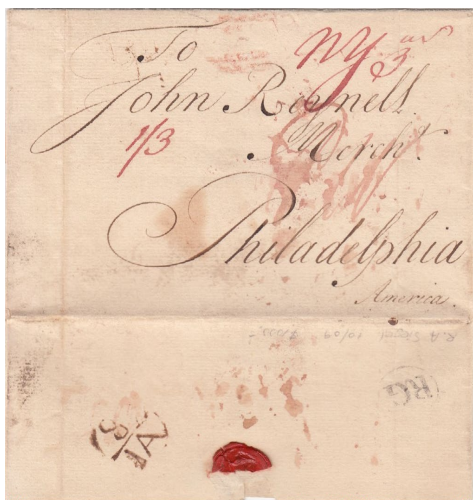 To
NY 3
John Reynell
1/3
Mercht.
Philadelphia
America.
RG